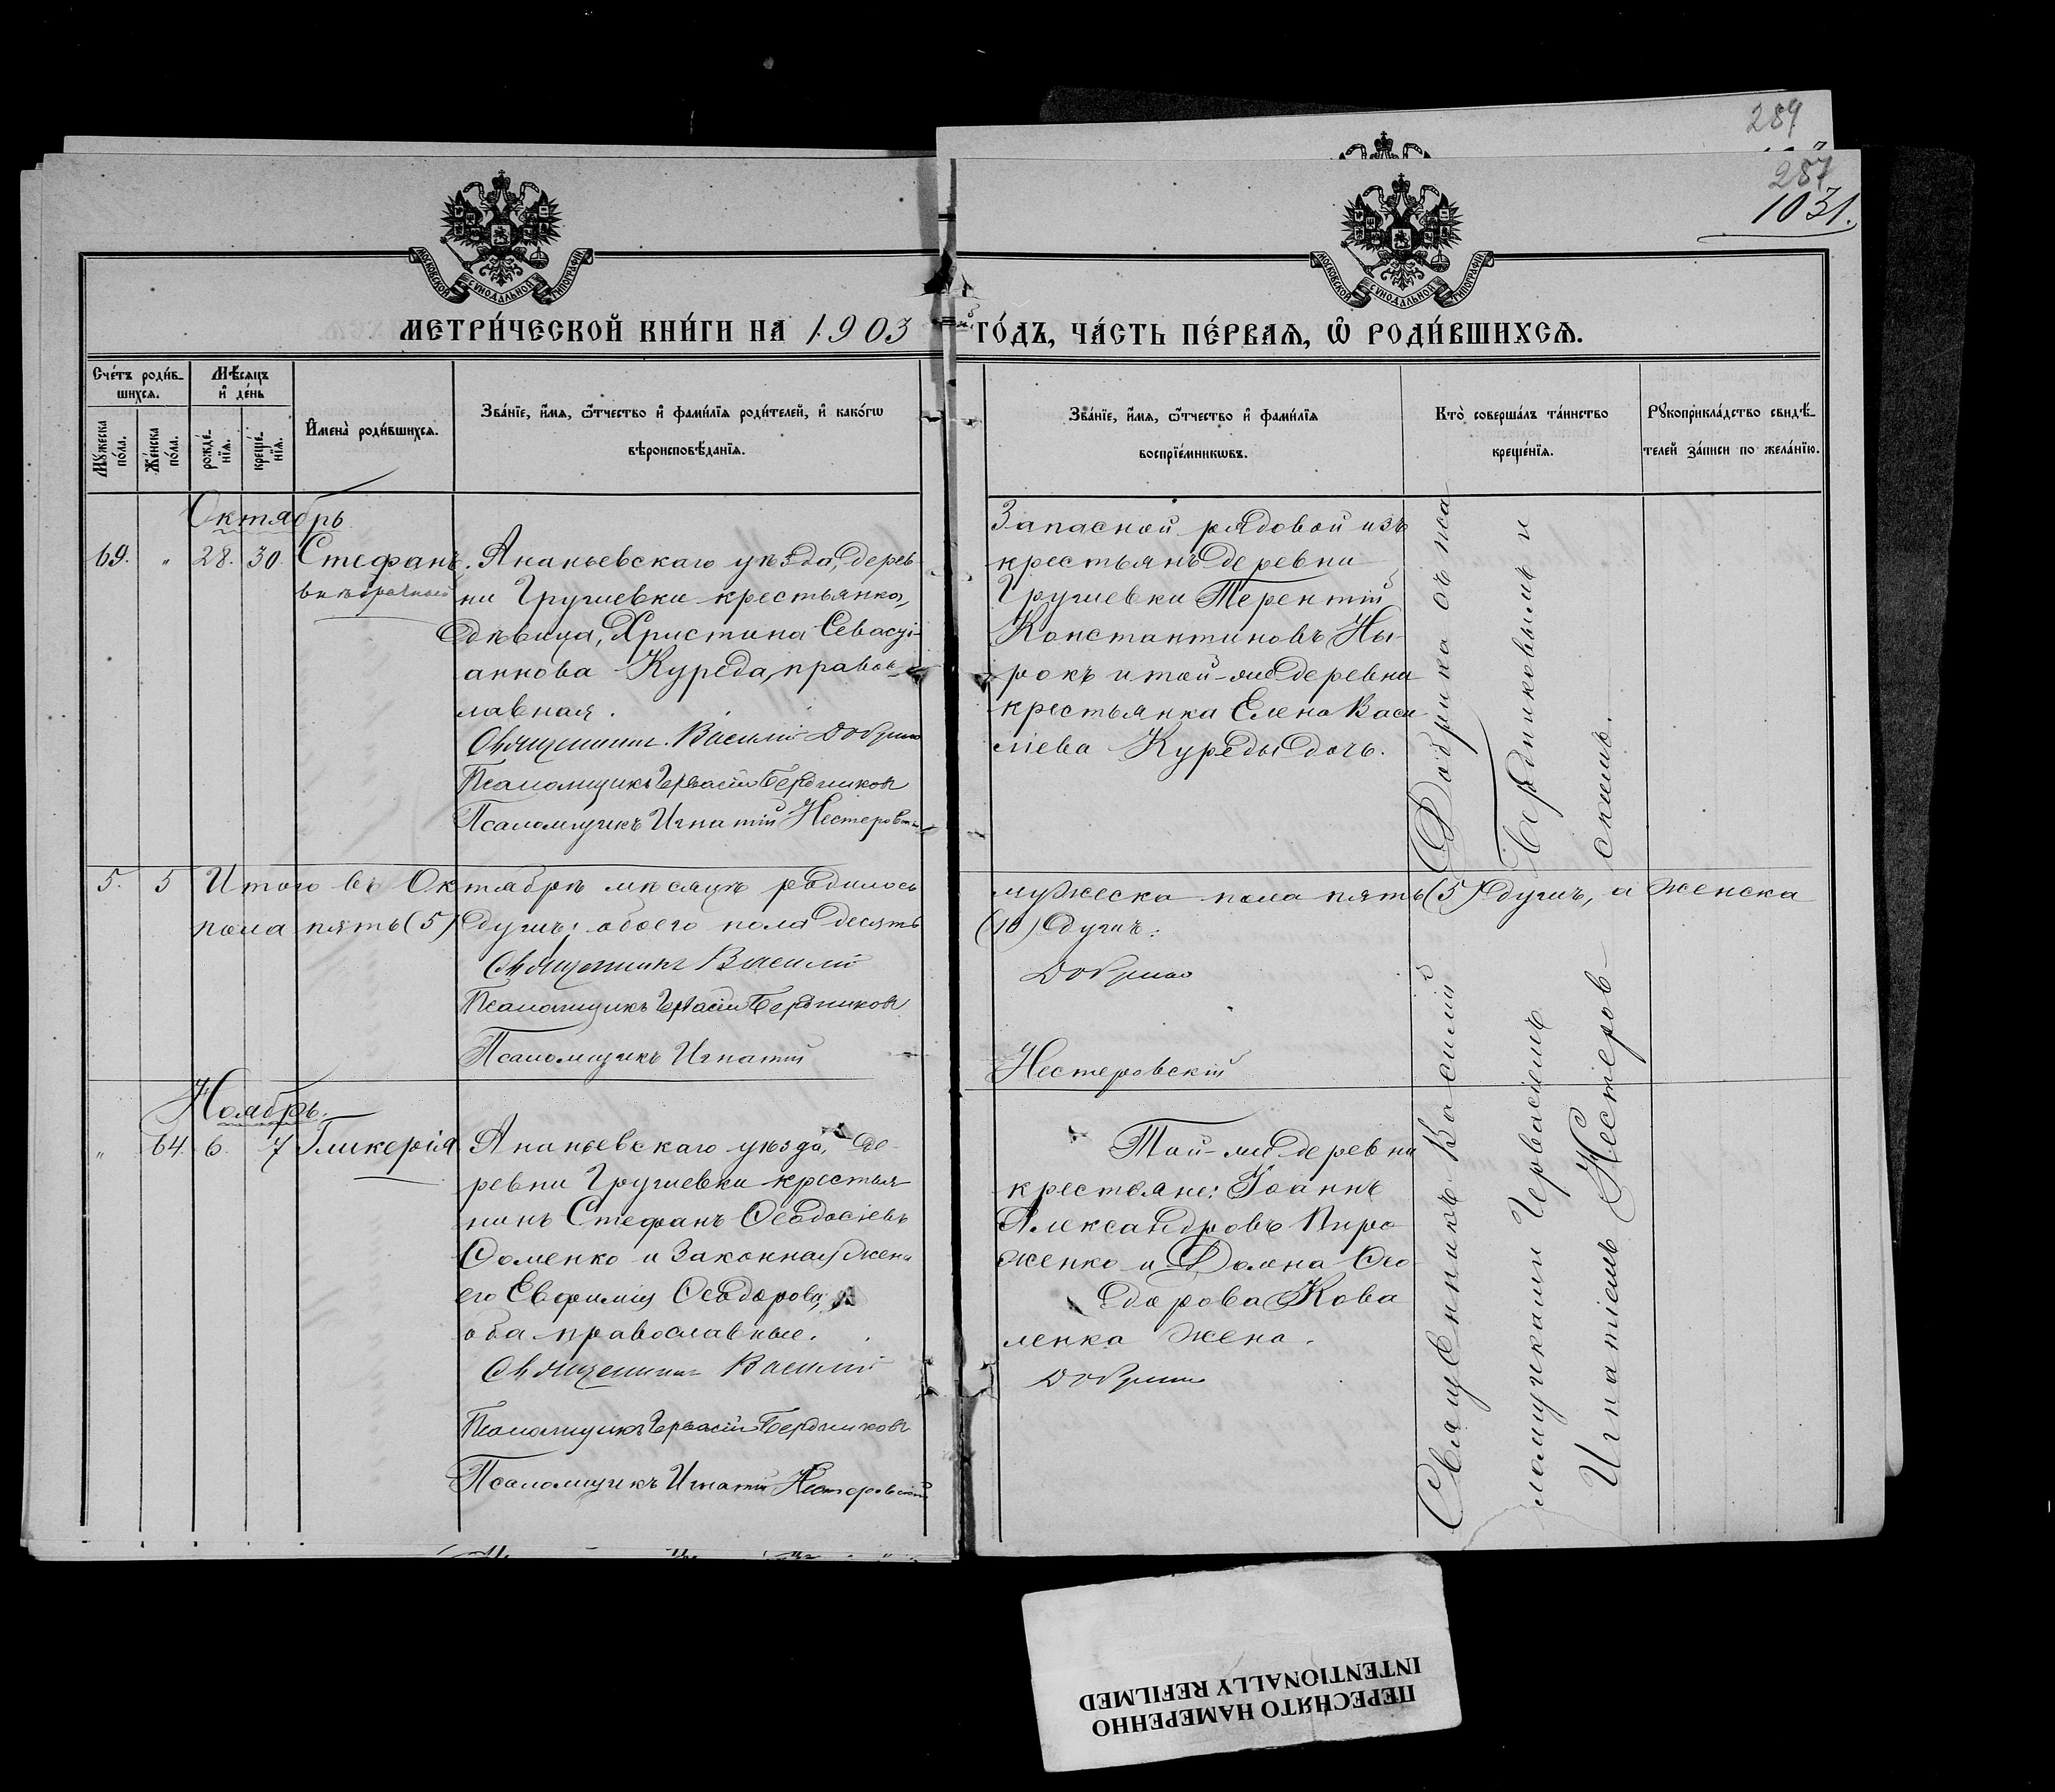 289
287
1031.
МОСКОВСКОЙ СУНОДАЛЬНОЙ ТИПОГРАФІИ
МОСКОВСКОЙ СУНОДАЛЬНОЙ ТИПОГРАФІИ
МЕТРИ́ЧЕСКОЙ КНИ́ГИ НА 1903 ГО́ДЪ, ЧА́СТЬ ПЕ́РВАѦ, Ѡ҆ РОДИ́ВШИХСѦ.
Сче́тъ роди́в-
шихсѧ.
Мꙋ́жеска по́ла.
Же́нска по́ла.
Мѣ́сѧцъ
и҆ де́нь
рожде́-
нїѧ.
креще́-
нїѧ.
И҆мена̀ роди́вшихсѧ.
Зва́нїе, и҆́мѧ, ѻ҆́тчество и҆ фами́лїѧ роди́телей, и҆ како́гѡ
вѣроисповѣ́данїѧ.
Зва́нїе, и҆́мѧ, ѻ҆́тчество и҆ фами́лїѧ
воспрїе́мникѡвъ.
Кто̀ соверша́лъ та́инство
креще́нїѧ.
Рꙋкоприкла́дство свидѣ́-
телей за́писи по жела́нїю.
Октябрь
69. " 28. 30. Стефанъ.
внѣбрачный
Ананьевскаго уѣзда, дерев
ни Грушевки крестьянка,
дѣвица, Христина Севасті-
анова Куреда, правос-
лавная.
Священникъ Василій Добрина
Псаломщикъ Гервасій Бердниковъ
Псаломщикъ Игнатій Нестеровскій
Запасной рядовой изъ
крестьянъ деревни
Грушевки Терентій
Константиновъ Ны-
рокъ и той-же деревни
крестьянка Елена Васи
ліева Куреды дочь.
5. 5 Итого въ Октябрѣ мѣсяцѣ родилось мужеска пола пять (5) душъ, а женска
пола пять (5) душъ; обоего пола десять (10) душъ:
Священникъ Василій Добрина
Псаломщикъ Гервасій Бердниковъ
Псаломщикъ Игнатій Нестеровскій
Ноябрь.
" 64. 6. 7 Гликерія
Ананьевскаго уѣзда, де-
ревни Грушевки крестья
нинъ Стефанъ Ѳеодосіевъ
Фоменко и законная жена
его Евфимія Ѳеодорова,
оба православные.
Священникъ Василій Добрина
Псаломщикъ Гервасій Бердниковъ
Псаломщикъ Игнатій Нестеровскій
Той-же деревни
крестьяне: Іоаннъ
Александровъ Пиро
женко и Домна Ѳео
дорова Кова
ленка жена.
Священникъ Василій Добрина съ пса
ломщиками Гервасіемъ Бердниковымъ и
Игнатіемъ Нестеров-
скимъ.
ПЕРЕСНЯТО НАМЕРЕННО
INTENTIONALLY REFILMED